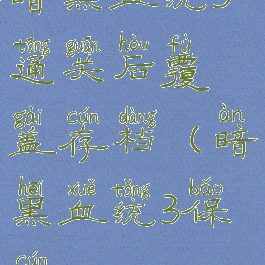 暗黑血统3
tōng guān hòu fù
通关后覆
gài cún dàng àn
盖存档（暗
hēi xuè tǒng bǎo
黑血统3保
cún